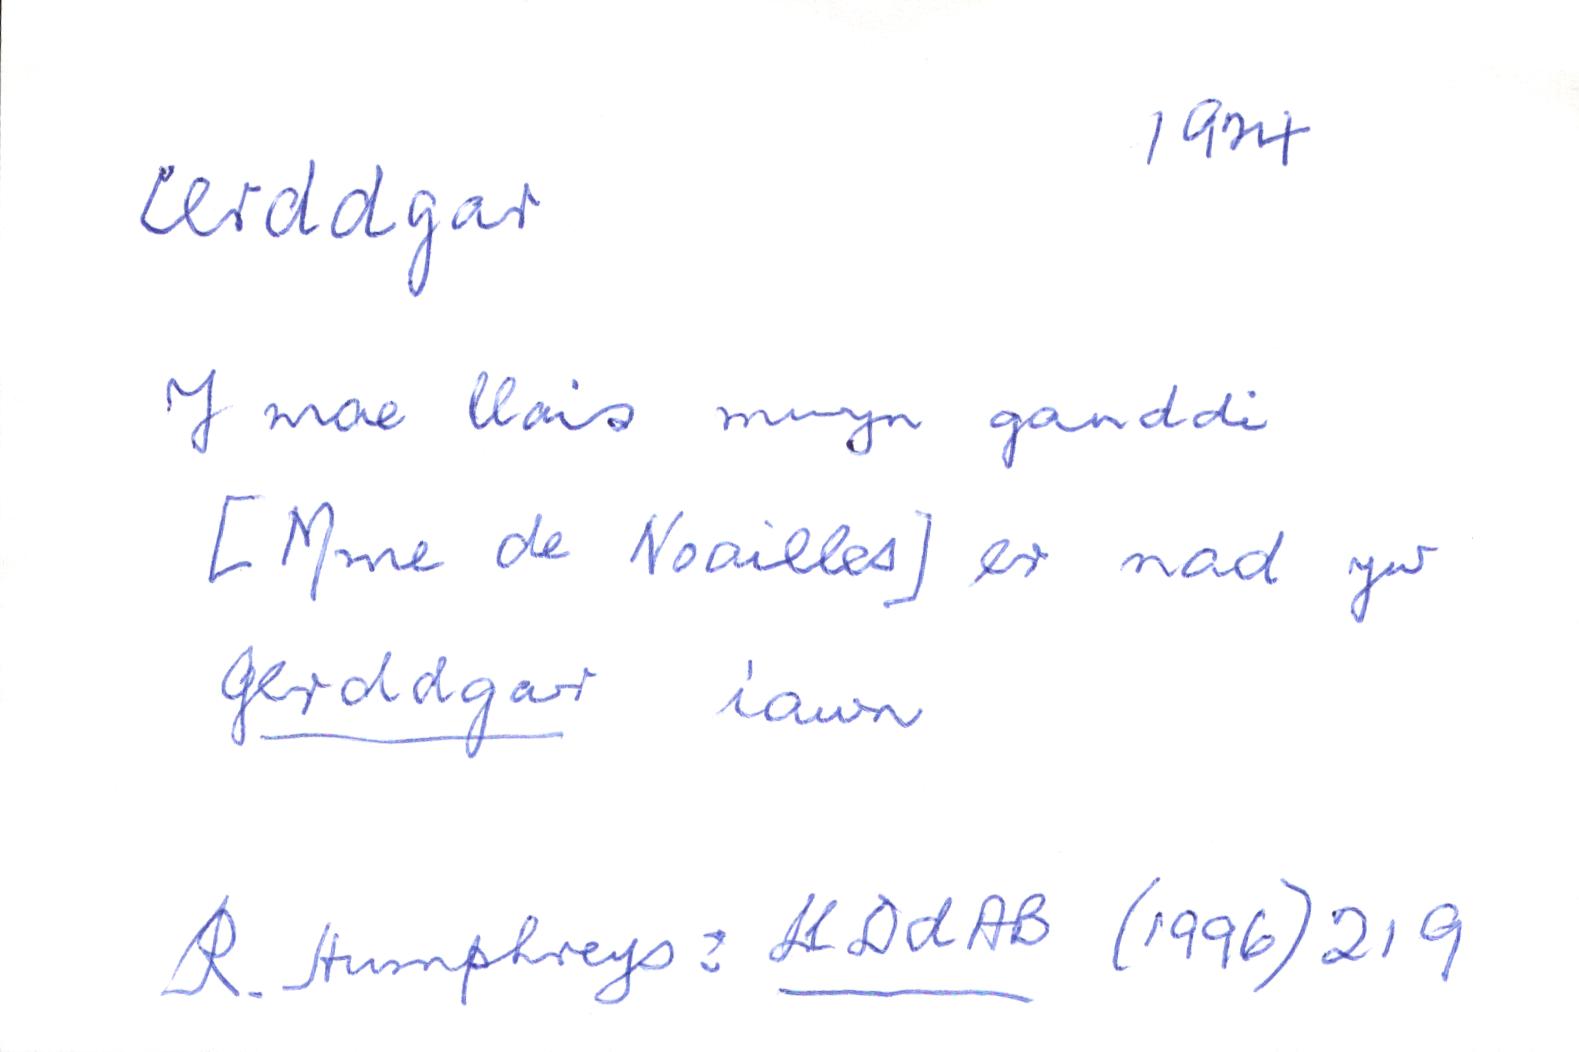 1924
Cerddgar
Y mae llais mwyn ganddi
[Mme de Noailles] er nad yw
gerddgar iawn
R. Humphreys: Ll DdAB (1996) 219